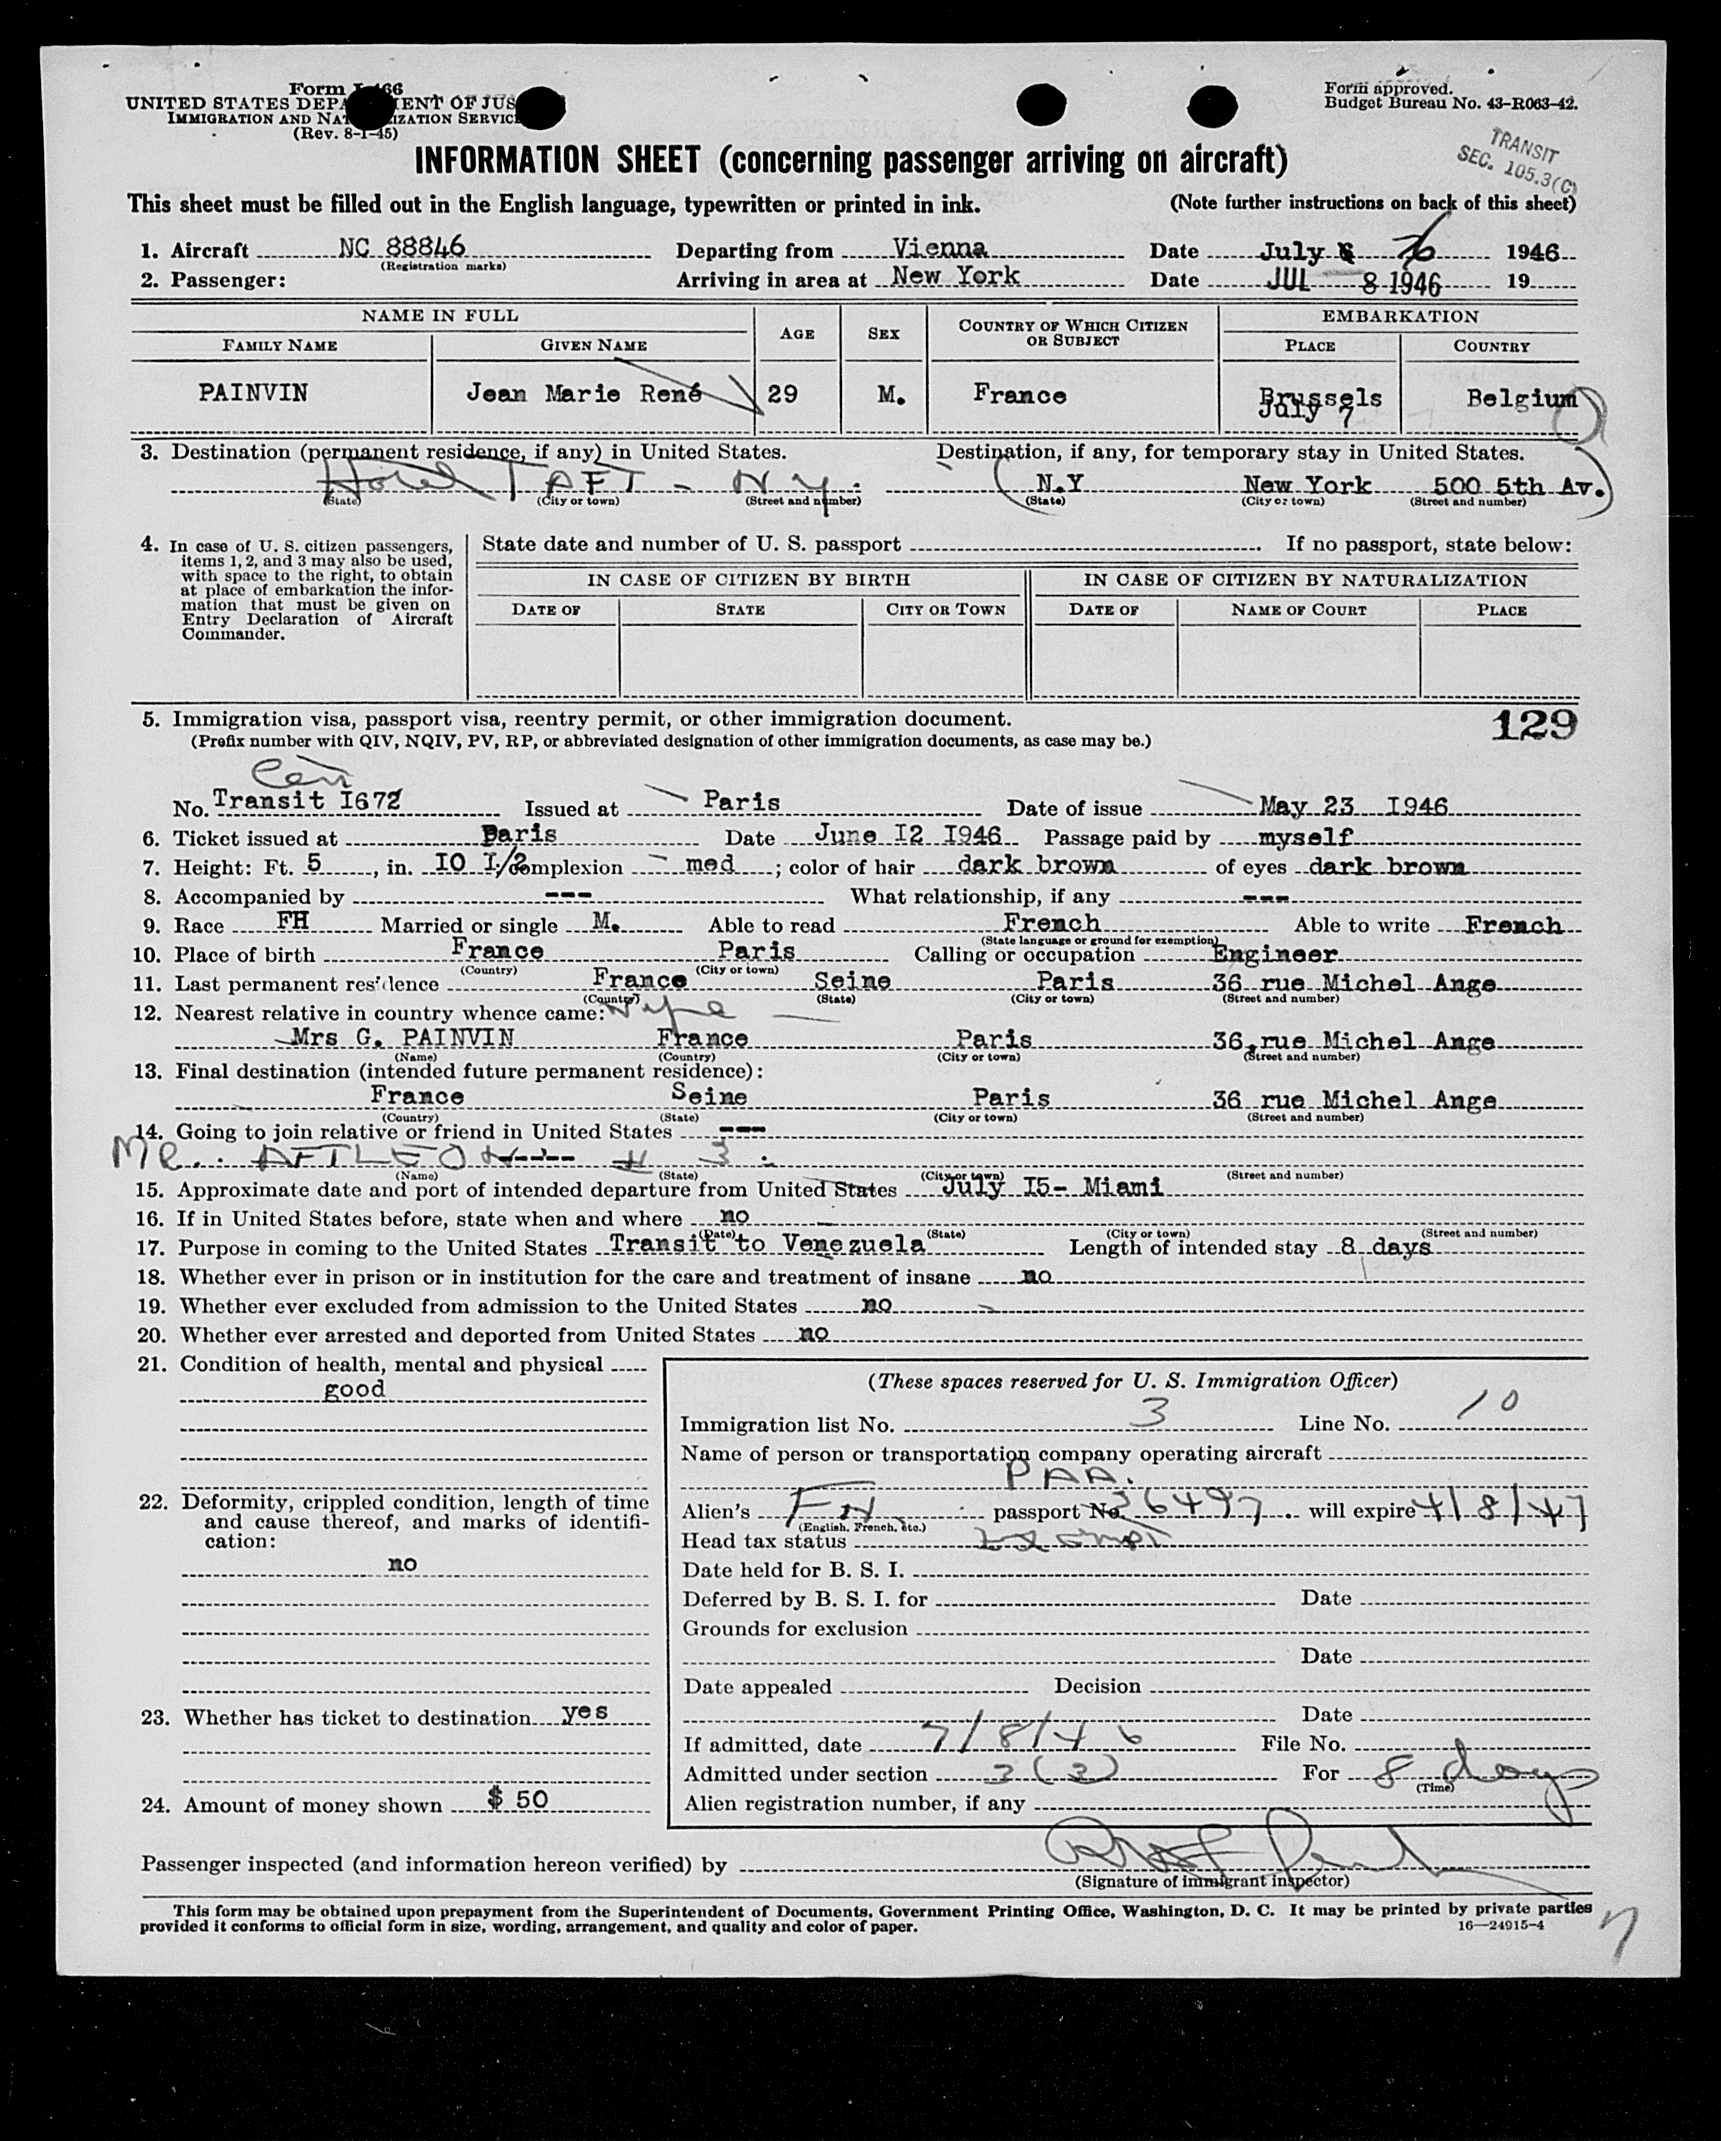 Form I-466
UNITED STATES DEPARTMENT OF JUSTICE
IMMIGRATION AND NATURALIZATION SERVICE
(Rev. 8-1-45)
Form approved.
Budget Bureau No. 43-R063-42.
TRANSIT
SEC. 105.3(C)
INFORMATION SHEET (concerning passenger arriving on aircraft)
This sheet must be filled out in the English language, typewritten or printed in ink. (Note further instructions on back of this sheet)
1. Aircraft NC 88846 Departing from Vienna Date July 1946
(Registration marks)
2. Passenger: Arriving in area at New York Date JUL 8 1946 19
NAME IN FULL AGE SEX COUNTRY OF WHICH CITIZEN OR SUBJECT EMBARKATION
FAMILY NAME GIVEN NAME PLACE COUNTRY
PAINVIN Jean Marie René 29 M. France Brussels Belgium
July 7
3. Destination (permanent residence, if any) in United States. Destination, if any, for temporary stay in United States.
Hotel TAFT - N Y. (N.Y New York 500 5th Av.)
(State) (City or town) (Street and number) (State) (City or town) (Street and number)
4. In case of U. S. citizen passengers, items 1, 2, and 3 may also be used, with space to the right, to obtain at place of embarkation the information that must be given on Entry Declaration of Aircraft Commander.
State date and number of U. S. passport If no passport, state below:
IN CASE OF CITIZEN BY BIRTH IN CASE OF CITIZEN BY NATURALIZATION
DATE OF STATE CITY OR TOWN DATE OF NAME OF COURT PLACE
5. Immigration visa, passport visa, reentry permit, or other immigration document. 129
(Prefix number with QIV, NQIV, PV, RP, or abbreviated designation of other immigration documents, as case may be.)
No. Transit I672 Issued at Paris Date of issue May 23 I946
6. Ticket issued at Paris Date June I2 I946 Passage paid by myself
7. Height: Ft. 5, in. IO I/2 Complexion med; color of hair dark brown of eyes dark brown
8. Accompanied by --- What relationship, if any ---
9. Race FH Married or single M. Able to read French Able to write French
(State language or ground for exemption)
10. Place of birth France Paris Calling or occupation Engineer
(Country) (City or town)
11. Last permanent residence France Seine Paris 36 rue Michel Ange
(Country) (State) (City or town) (Street and number)
12. Nearest relative in country whence came: Wife
Mrs G. PAINVIN France Paris 36, rue Michel Ange
(Name) (Country) (City or town) (Street and number)
13. Final destination (intended future permanent residence):
France Seine Paris 36 rue Michel Ange
(Country) (State) (City or town) (Street and number)
14. Going to join relative or friend in United States ---
MR. # 3.
(Name) (State) (City or town) (Street and number)
15. Approximate date and port of intended departure from United States July I5- Miami
16. If in United States before, state when and where no
(Date) (State) (City or town) (Street and number)
17. Purpose in coming to the United States Transit to Venezuela Length of intended stay 8 days
18. Whether ever in prison or in institution for the care and treatment of insane no
19. Whether ever excluded from admission to the United States no
20. Whether ever arrested and deported from United States no
21. Condition of health, mental and physical
good
22. Deformity, crippled condition, length of time and cause thereof, and marks of identification:
no
23. Whether has ticket to destination yes
24. Amount of money shown $ 50
(These spaces reserved for U. S. Immigration Officer)
Immigration list No. 3 Line No. 10
Name of person or transportation company operating aircraft
PAA.
Alien's FH passport No. 36497 will expire 4/8/47
(English, French, etc.)
Head tax status Exempt
Date held for B. S. I.
Deferred by B. S. I. for Date
Grounds for exclusion
Date
Date appealed Decision
Date
If admitted, date 7/8/46 File No.
Admitted under section 3(3) For 8 days
(Time)
Alien registration number, if any
Passenger inspected (and information hereon verified) by
(Signature of immigrant inspector)
This form may be obtained upon prepayment from the Superintendent of Documents, Government Printing Office, Washington, D. C. It may be printed by private parties
provided it conforms to official form in size, wording, arrangement, and quality and color of paper. 16—24915-4